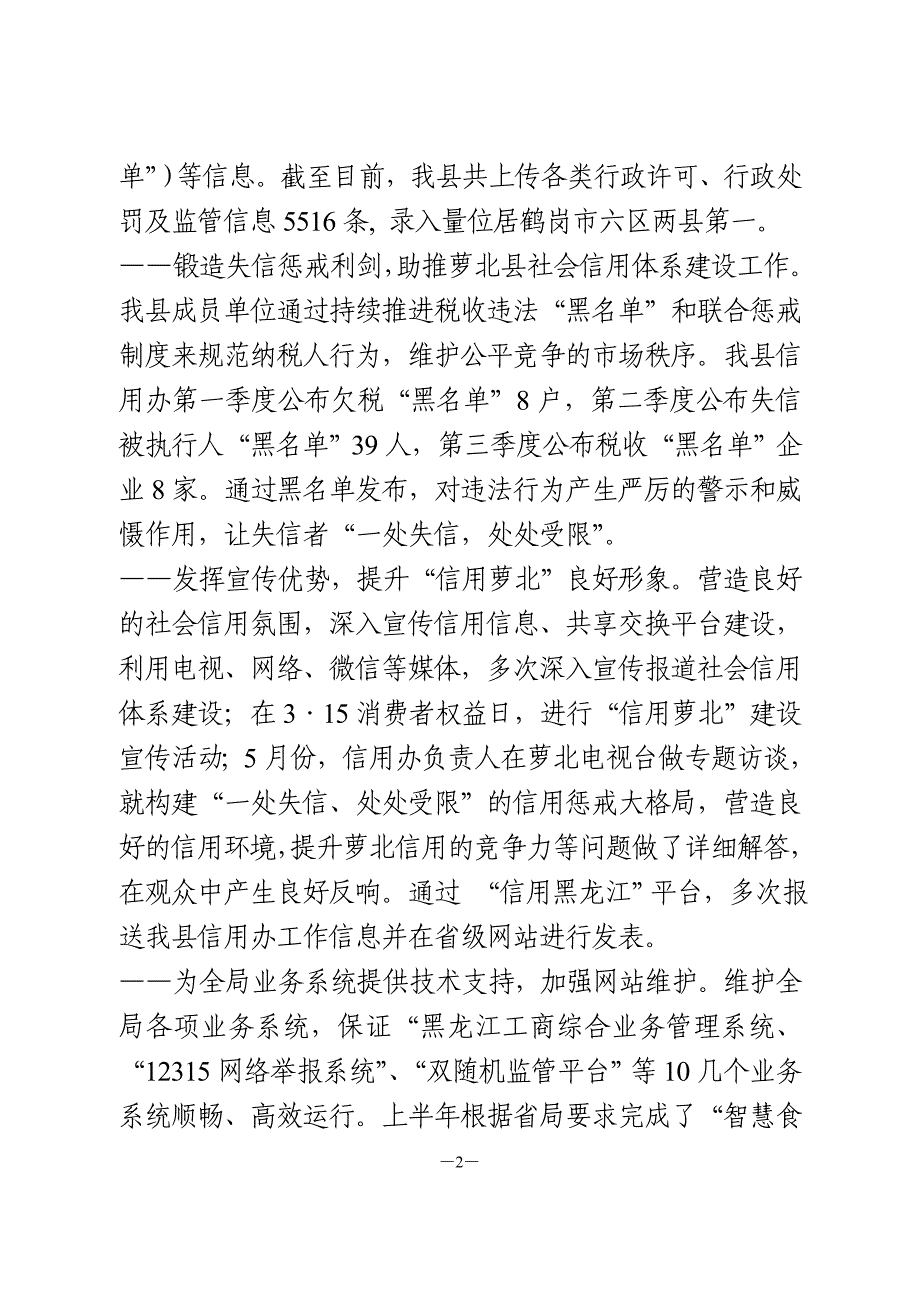 单”)等信息。截至目前，我县共上传各类行政许可、行政处
罚及监管信息 5516 条, 录入量位居鹤岗市六区两县第一。
——锻造失信惩戒利剑,助推萝北县社会信用体系建设工作。
我县成员单位通过持续推进税收违法“黑名单”和联合惩戒
制度来规范纳税人行为，维护公平竞争的市场秩序。我县信
用办第一季度公布欠税“黑名单”8 户，第二季度公布失信
被执行人“黑名单”39 人，第三季度公布税收“黑名单”企
业 8 家。通过黑名单发布，对违法行为产生严厉的警示和威
慑作用，让失信者“一处失信，处处受限”。
——发挥宣传优势，提升“信用萝北”良好形象。营造良好
的社会信用氛围，深入宣传信用信息、共享交换平台建设，
利用电视、网络、微信等媒体，多次深入宣传报道社会信用
体系建设；在 3·15 消费者权益日，进行“信用萝北”建设
宣传活动; 5 月份，信用办负责人在萝北电视台做专题访谈，
就构建“一处失信、处处受限”的信用惩戒大格局，营造良
好的信用环境,提升萝北信用的竞争力等问题做了详细解答，
在观众中产生良好反响。通过 “信用黑龙江”平台，多次报
送我县信用办工作信息并在省级网站进行发表。
——为全局业务系统提供技术支持，加强网站维护。维护全
局各项业务系统，保证“黑龙江工商综合业务管理系统、
“12315 网络举报系统”、“双随机监管平台”等 10 几个业务
系统顺畅、高效运行。上半年根据省局要求完成了“智慧食
—2—